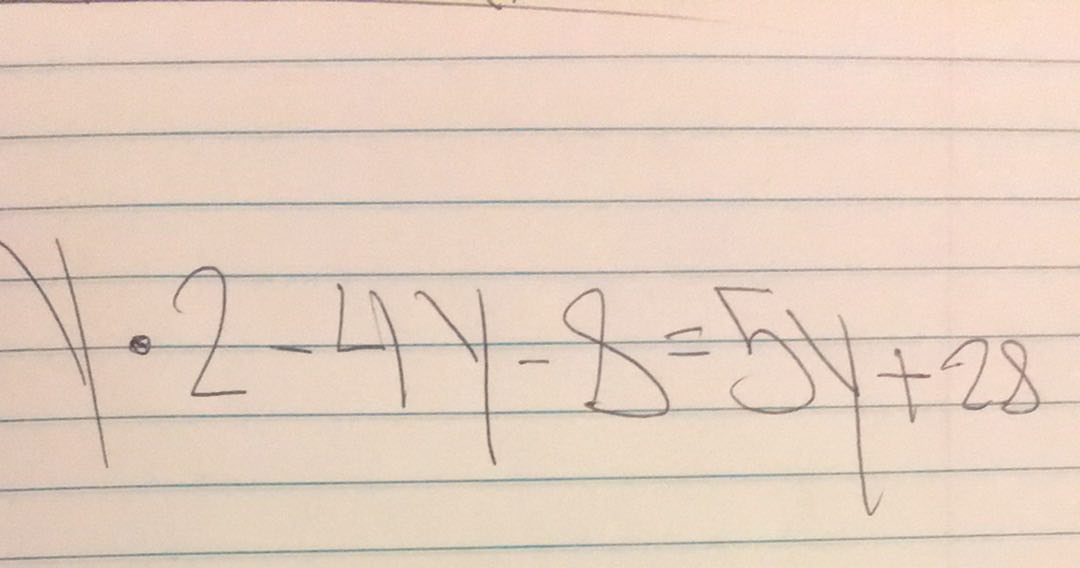 y • 2 - 4y - 8 = 5y + 28